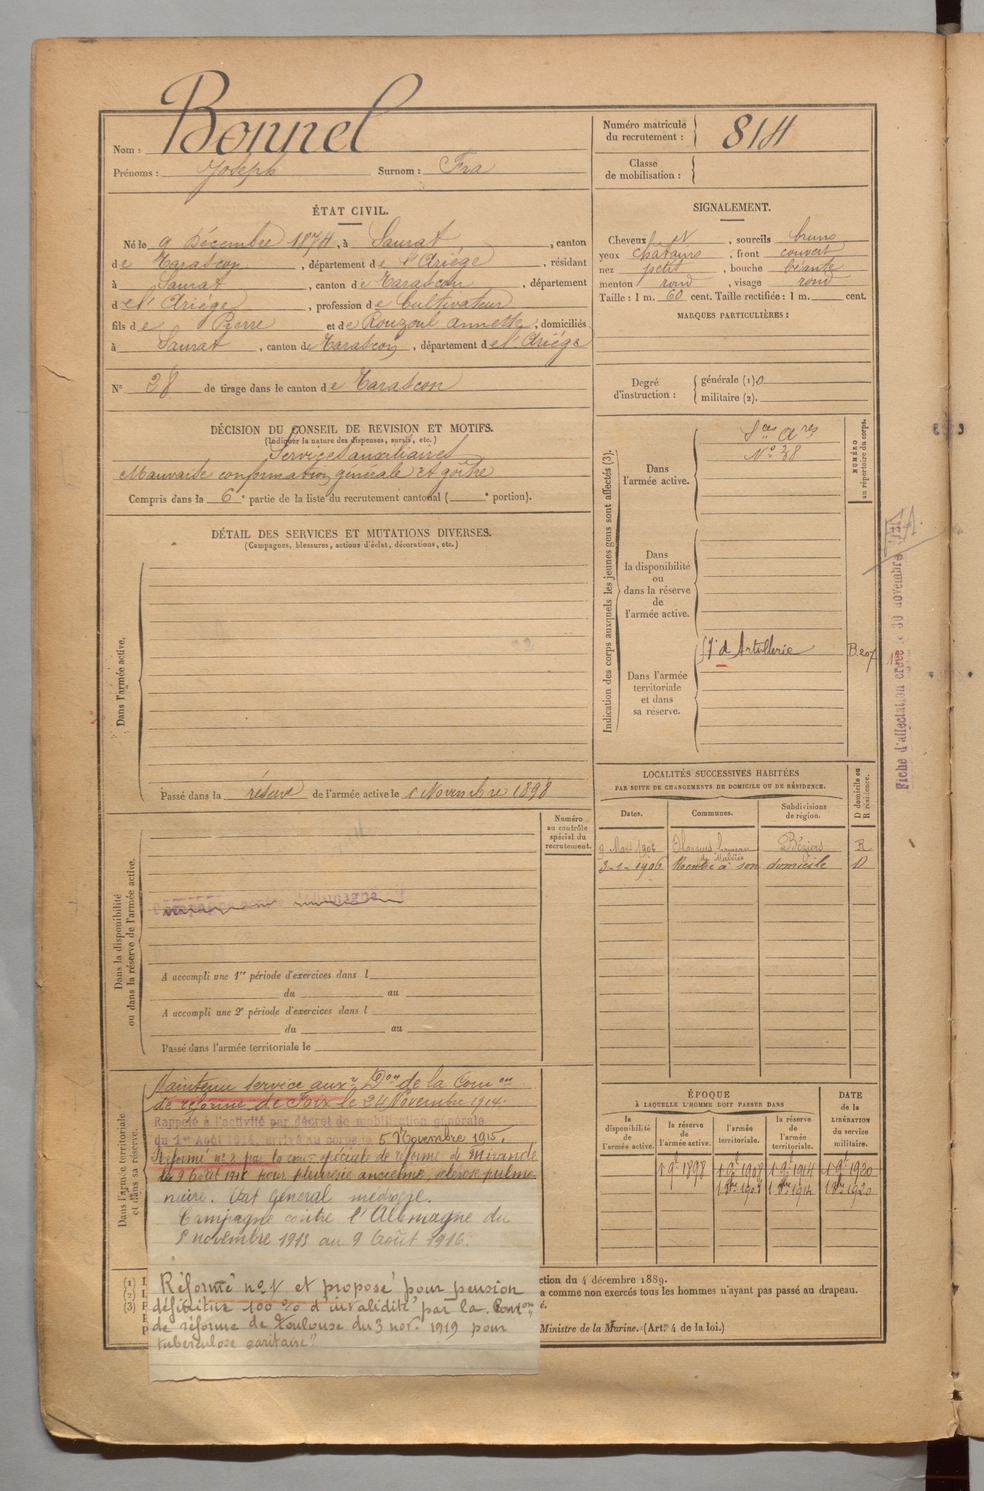 Nom : Bonnel
Prénoms : Joseph Surnom : Fra
Numéro matricule du recrutement : 814
Classe de mobilisation :
ÉTAT CIVIL.
Né le 9 Décembre 1874, à Saurat, canton
de Tarascon, département de l'Ariège, résidant
à Saurat, canton de Tarascon, département
de l'Ariège, profession de Cultivateur
fils de Pierre et de Rouzoul Annette, domiciliés
à Saurat, canton de Tarascon, département de l'Ariège
N° 28 de tirage dans le canton de Tarascon
SIGNALEMENT.
Cheveux N, sourcils bruns
yeux chatains, front couvert
nez petit, bouche béante
menton rond, visage rond
Taille : 1 m. 60 cent. Taille rectifiée : 1 m. cent.
MARQUES PARTICULIÈRES :
Degré d'instruction : générale (1) 0
militaire (2).
DÉCISION DU CONSEIL DE REVISION ET MOTIFS.
(Indiquer la nature des dispenses, sursis, etc.)
Services auxiliaires
Mauvaise conformation générale et goître
Compris dans la 6e partie de la liste du recrutement cantonal ( e portion).
DÉTAIL DES SERVICES ET MUTATIONS DIVERSES.
(Campagnes, blessures, actions d'éclat, décorations, etc.)
Dans l'armée active.
Passé dans la réserve de l'armée active le 1 Novembre 1898
Indication des corps auxquels les jeunes gens sont affectés (3).
NUMÉRO au répertoire du corps.
Dans l'armée active.
Sces Ares
N° 28
Dans la disponibilité ou dans la réserve de l'armée active.
Dans l'armée territoriale et dans sa réserve.
d'Artillerie
Fiche d'affectation créée le 30 novembre
LOCALITÉS SUCCESSIVES HABITÉES
PAR SUITE DE CHANGEMENTS DE DOMICILE OU DE RÉSIDENCE.
D domicile ou R résidence.
Dates. Communes. Subdivisions de région.
Béziers R
3-1-1906 Rentré à son domicile D
Numéro au contrôle spécial du recrutement.
Dans la disponibilité ou dans la réserve de l'armée active.
A accompli une 1re période d'exercices dans l
du au
A accompli une 2e période d'exercices dans l
du au
Passé dans l'armée territoriale le
Dans l'armée territoriale et dans sa réserve.
Maintenu service auxre Don de la Comon
de réforme de Foix le 24 Novembre 1914.
Rappelé à l'activité par décret de mobilisation générale
du 1er Août 1914, arrivé au corps le 5 Novembre 1915.
Réformé n° 2 par la com. spéciale de réforme de Mirande
le 9 Août 1916 pour pleurésie ancienne, sclérose pulmo
naire. État général médiocre.
Campagne contre l'Allemagne du
5 novembre 1915 au 9 Août 1916.
Réformé n° 1 et proposé pour pension
définitive 100 % d'invalidité par la Comon
de réforme de Toulouse du 3 nov. 1919 pour
tuberculose
ÉPOQUE
À LAQUELLE L'HOMME DOIT PASSER DANS
DATE de la LIBÉRATION du service militaire.
la disponibilité de l'armée active.
la réserve de l'armée active.
l'armée territoriale.
la réserve de l'armée territoriale.
1 9t 1898 1 9t 1908 1 9t 1914 1 9t 1920
1 8bre 1908 1 8bre 1914 1 8bre 1920
(1) I
(2) I
(3) P
ction du 4 décembre 1889.
a comme non exercés tous les hommes n'ayant pas passé au drapeau.
é.
Ministre de la Marine. (Art. 4 de la loi.)